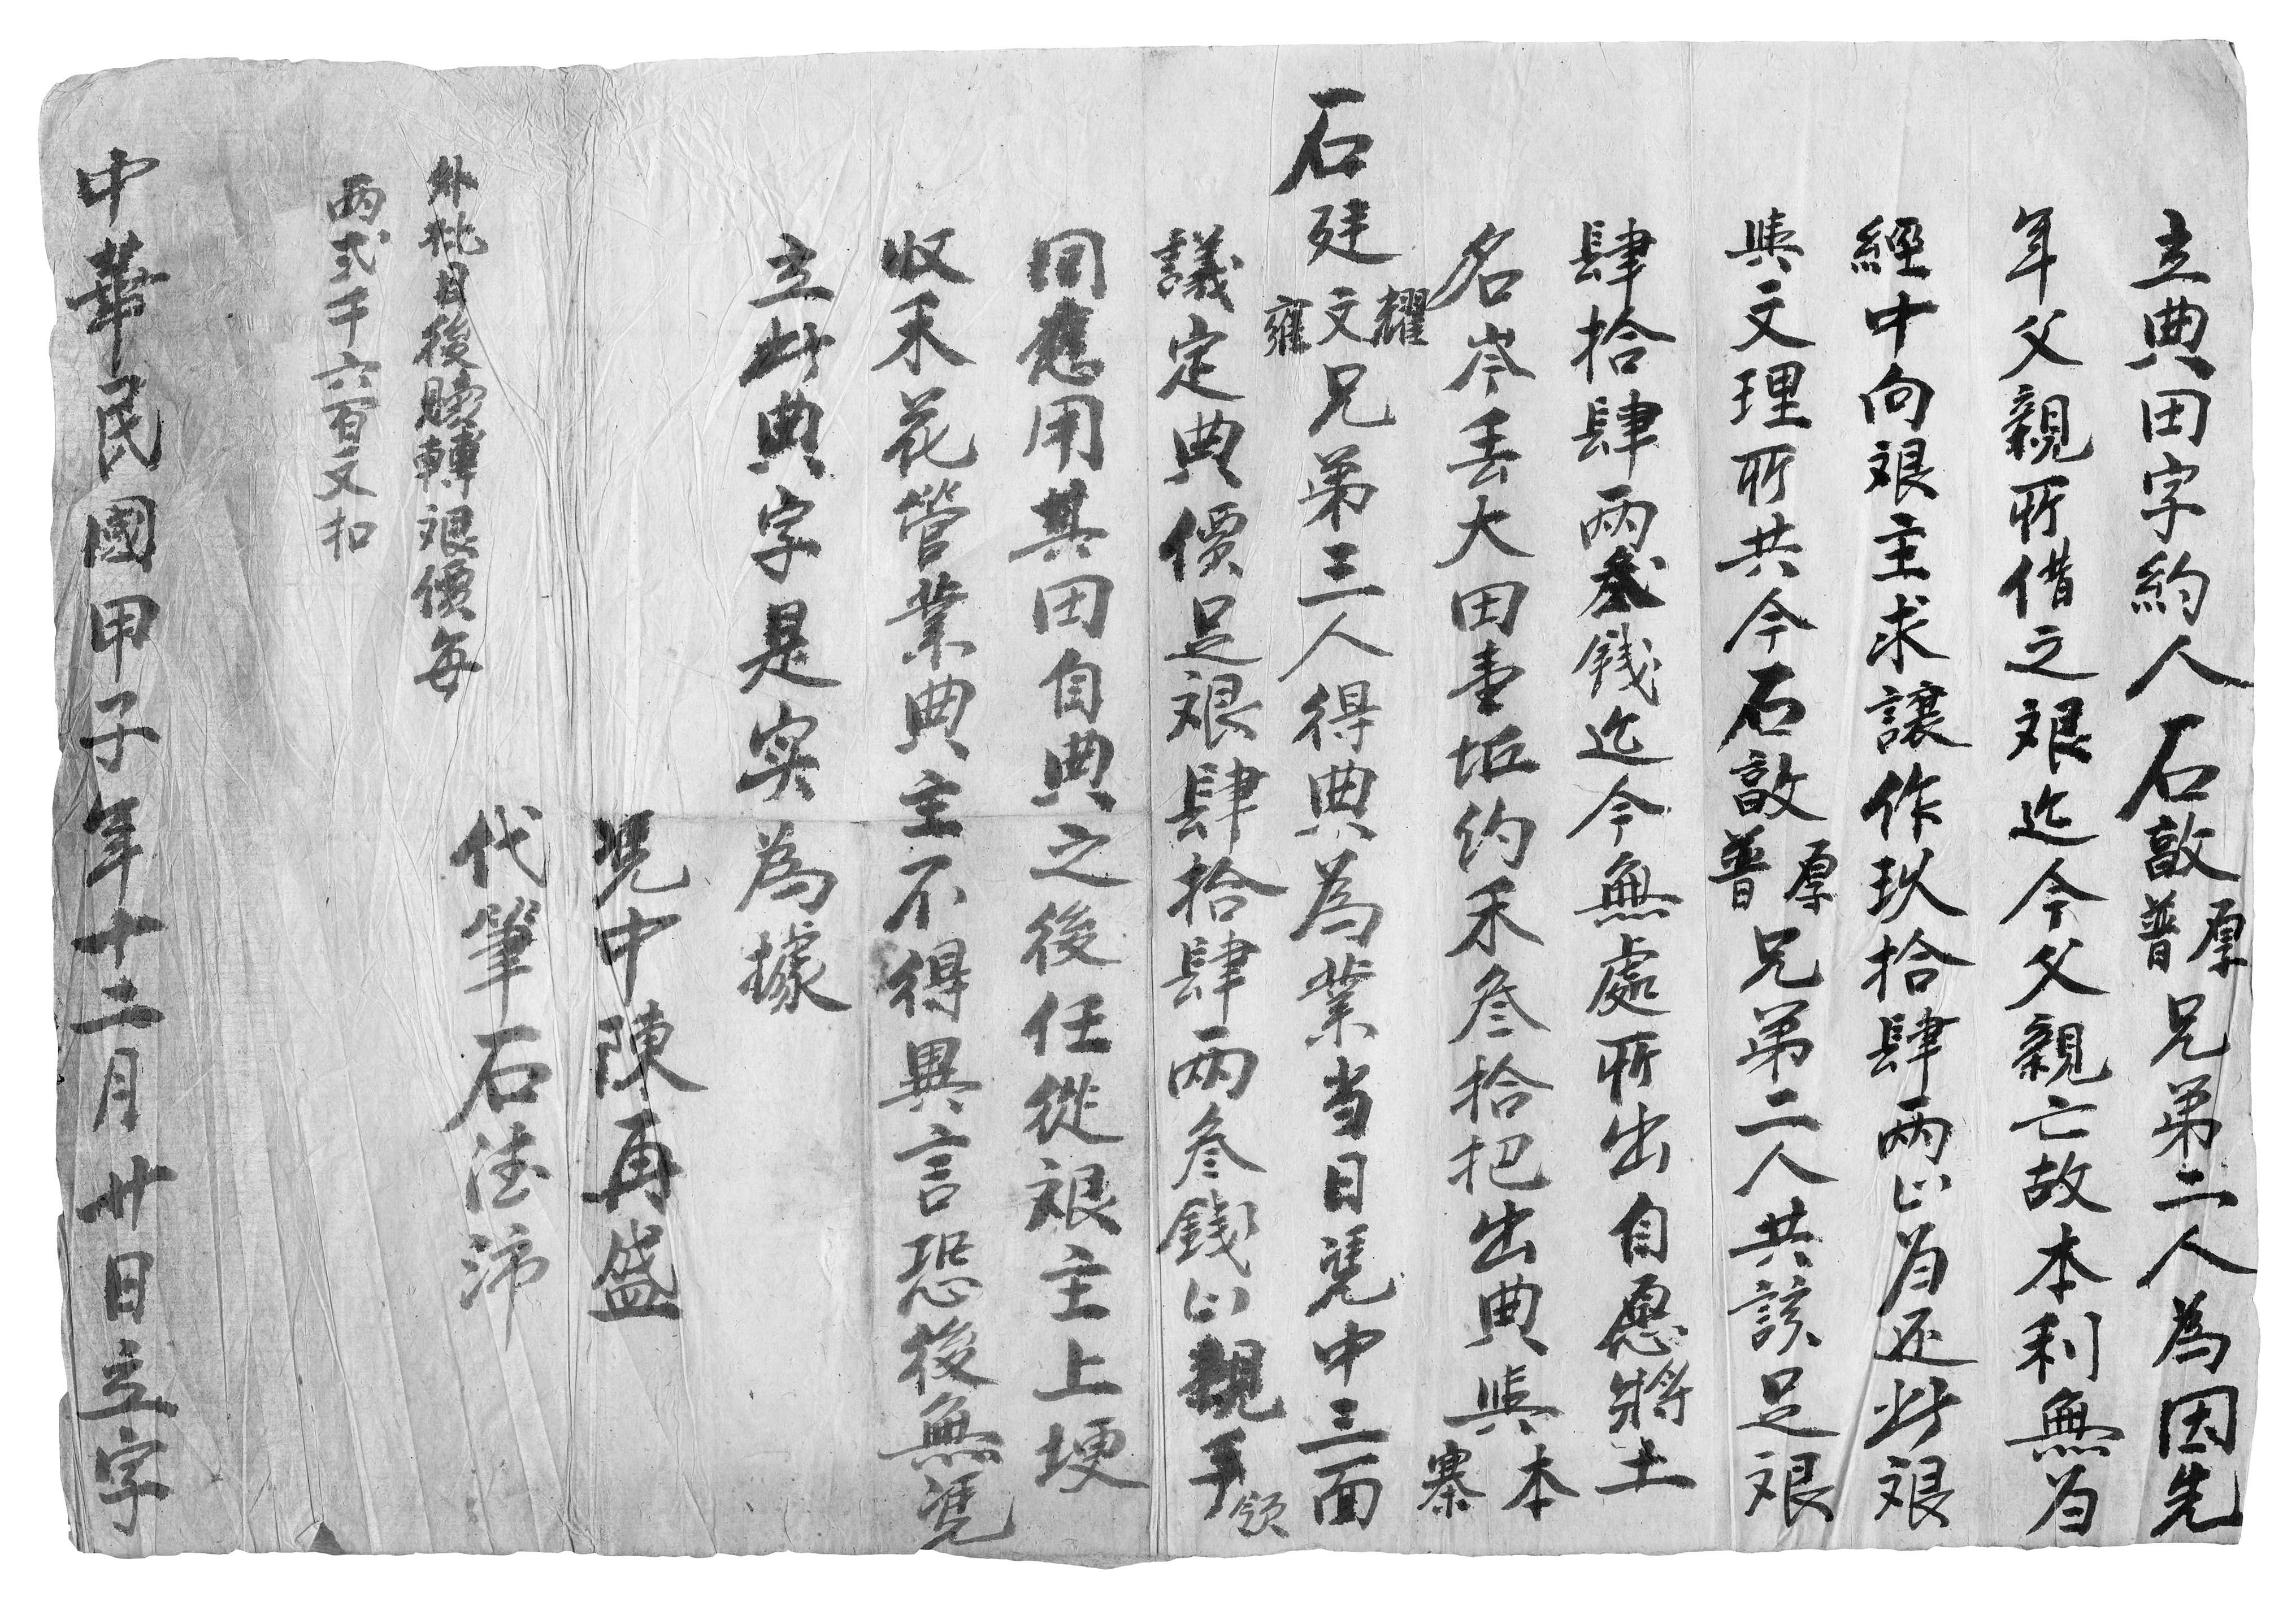 立典田字約人石啟厚普兄弟二人為因先
年父親所借之艮迄今父親亡故本利無為
經中向艮主求讓作玖拾肆兩以為还此艮
與文理所共今石啟厚普兄弟二人共該足艮
肆拾肆兩叁錢迄今無處所出自愿將土
名岑丟大田壹坵约禾叁拾把出典與本寨
石廷耀文雍兄弟三人得典為業当日凭中三面
議定典價足艮肆拾肆兩叁錢以親手領
回應用其田自典之後任從艮主上埂
收禾花管業典主不得異言恐後無凭
立此典字是实為據
凭中陳再盛
代筆石德沛
外批日後贖轉艮價每
兩弍千六百文扣
中華民國甲子年十二月廿日立字